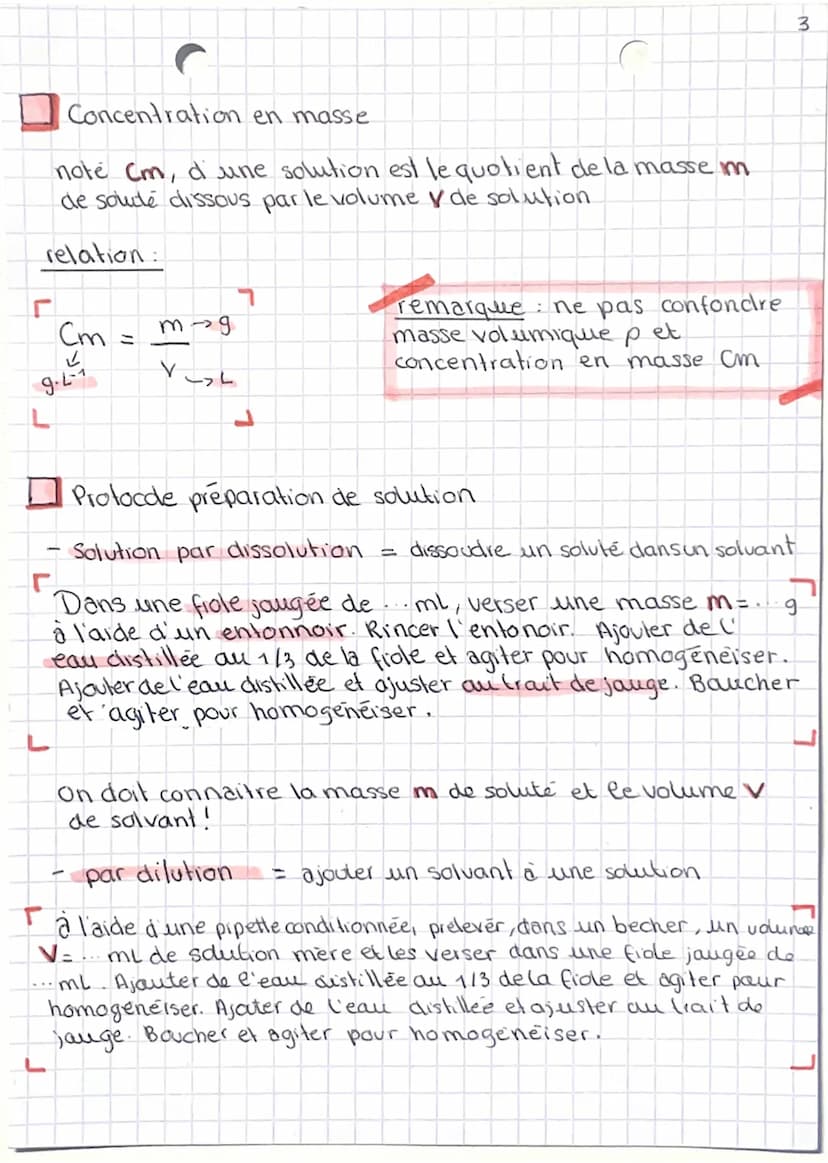 3
Concentration en masse
noté Cm, d'une solution est le quotient de la masse m
de soluté dissous par le volume V de solution
relation :
Cm = m → g
g.L-1
V → L
remarque : ne pas confondre
masse volumique ρ et
concentration en masse Cm
Protocole préparation de solution
- Solution par dissolution = dissoudre un soluté dans un solvant
Dans une fiole jaugée de ... mL, verser une masse m = ... g
à l'aide d'un entonnoir. Rincer l'entonoir. Ajouter de l'
eau distillée au 1/3 de la fiole et agiter pour homogénéiser.
Ajouter de l'eau distillée et ajuster au trait de jauge. Boucher
et agiter pour homogénéiser.
On doit connaitre la masse m de soluté et le volume V
de solvant !
- par dilution = ajouter un solvant à une solution
à l'aide d'une pipette conditionnée, prélever, dans un becher, un volume
V = ... mL de solution mère et les verser dans une fiole jaugée de
... mL. Ajouter de l'eau distillée au 1/3 de la fiole et agiter pour
homogénéiser. Ajouter de l'eau distillée et ajuster au trait de
jauge. Boucher et agiter pour homogénéiser.